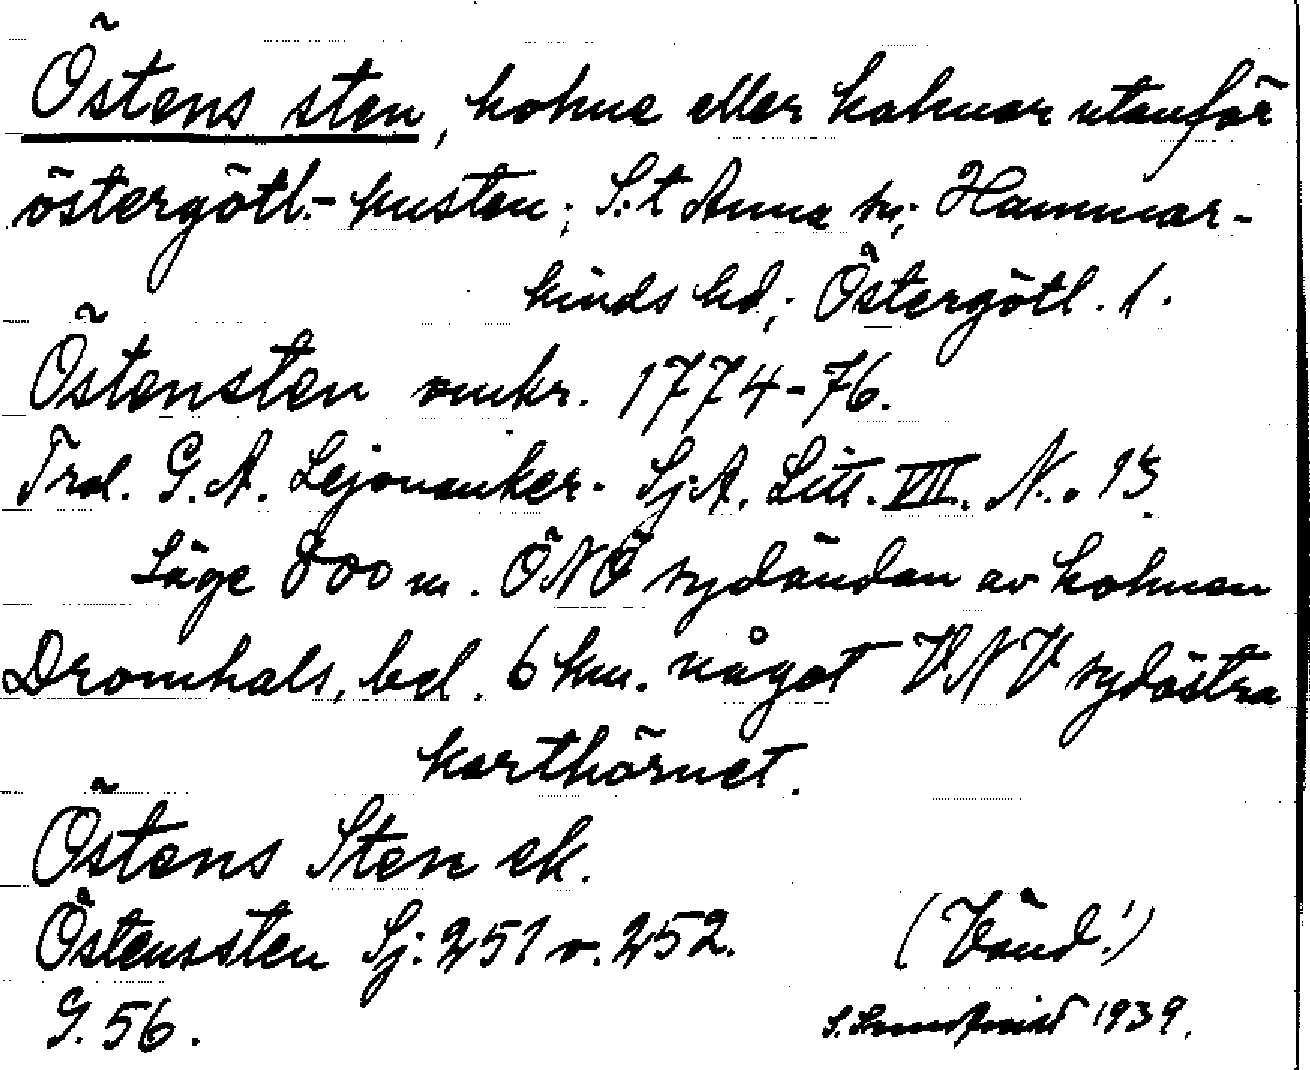 Östens sten, holme eller holmar utanför
östergötl.- kusten; S:t Anna sn; Hammar-
kinds hd; Östergötl. l.
Östensten omkr. 1774-76.
Trol. G. A. Lejonanker. Sj.A. Litt. VII. N.. 13
Läge 800 m. ÖNÖ sydändan av holmen
Dromhals, bel. 6 km. något VNV sydöstra
karthörnet.
Östens Sten ek.
Östenssten Sj: 251 o. 252. (Vänd!)
G. 56. S. 1939.